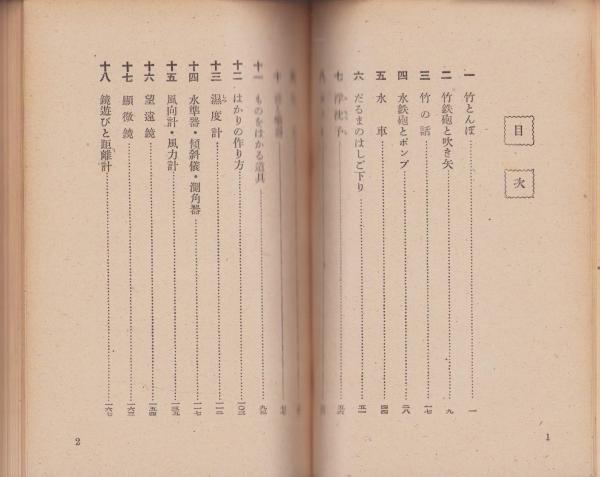 目次
一 竹とんぼ 一
二 竹鉄砲と吹き矢 九
三 竹の話 一七
四 水鉄砲とポンプ 二八
五 水車 四四
六 だるまのはしご下り 五一
七 浮沈子 五六
八
十一 ものをはかる道具
十二 はかりの作り方 一〇三
十三 温度計 一一二
十四 水準器・傾斜儀・測角器 一一七
十五 風向計・風力計 一三五
十六 望遠鏡 一五四
十七 顕微鏡 一六三
十八 鏡遊びと距離計 一六七
1
2